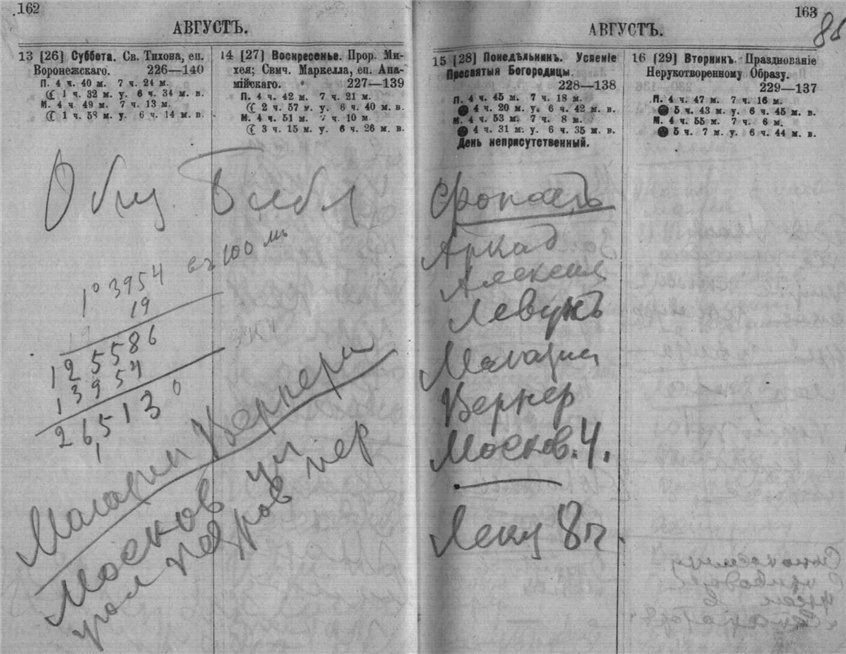 162
АВГУСТЪ.
13 [26] Суббота. Св. Тихона, еп.
Воронежскаго. 226—140
П. 4 ч. 40 м. 7 ч. 24 м.
1 ч. 32 м. у. 6 ч. 34 м. в.
М. 4 ч. 49 м. 7 ч. 13 м.
1 ч. 58 м. у. 6 ч. 14 м. в.
14 [27] Воскресенье. Прор. Ми-
хея; Свмч. Маркелла, еп. Апа-
мійскаго. 227—139
П. 4 ч. 42 м. 7 ч. 21 м.
2 ч. 57 м. у. 6 ч. 40 м. в.
М. 4 ч. 51 м. 7 ч. 10 м.
3 ч. 15 м. у. 6 ч. 26 м. в.
Общ. Библ
103954
19
125586
13954
265130
Магазин Вернера
Москов ул
163
86
АВГУСТЪ.
15 [28] Понедѣльникъ. Успеніе
Пресвятыя Богородицы.
228—138
П. 4 ч. 45 м. 7 ч. 18 м.
4 ч. 20 м. у. 6 ч. 42 м. в.
М. 4 ч. 53 м. 7 ч. 8 м.
4 ч. 31 м. у. 6 ч. 35 м. в.
День неприсутственный.
16 (29) Вторникъ. Празднованіе
Нерукотворенному Образу.
229—137
П. 4 ч. 47 м. 7 ч. 16 м.
5 ч. 43 м. у. 6 ч. 45 м. в.
М. 4 ч. 55 м. 7 ч. 6 м.
5 ч. 7 м. у. 6 ч. 44 м. в.
Аркад
Алексия
Левукъ
Магазин
Вернер
Москов. 4.
8 ч.